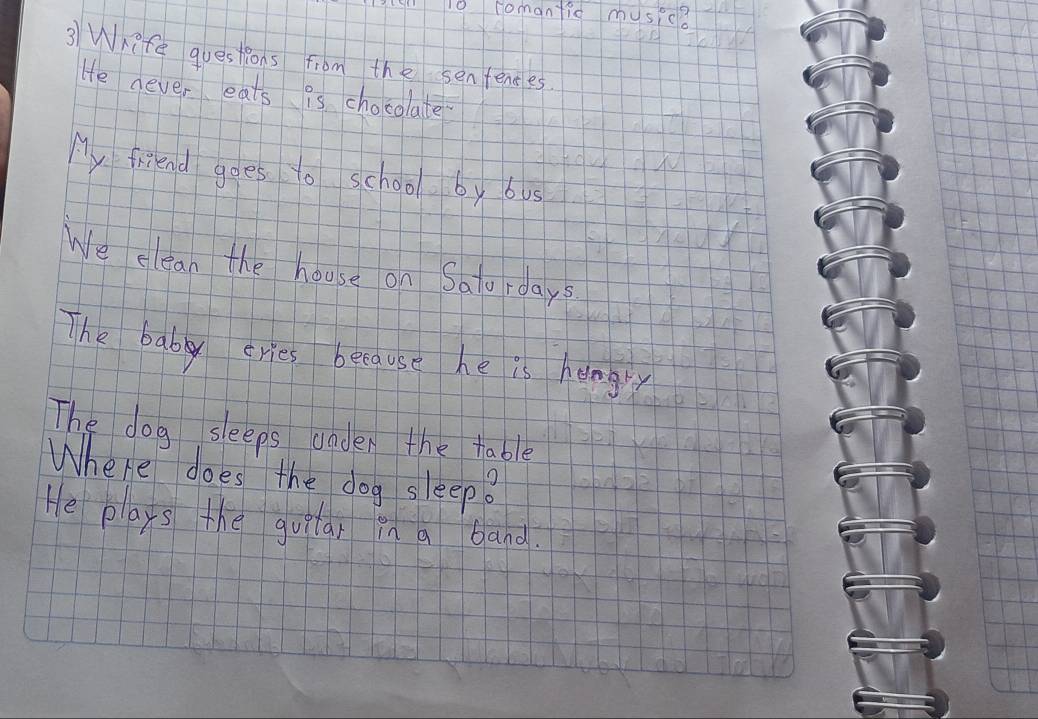 to romantic music?
3) Write questions from the sentences.
He never eats is chocolate
My friend goes to school by bus
We clean the house on Saturdays.
The baby cries because he is hungry
The dog sleeps under the table
Where does the dog sleep?
He plays the guitar in a band.